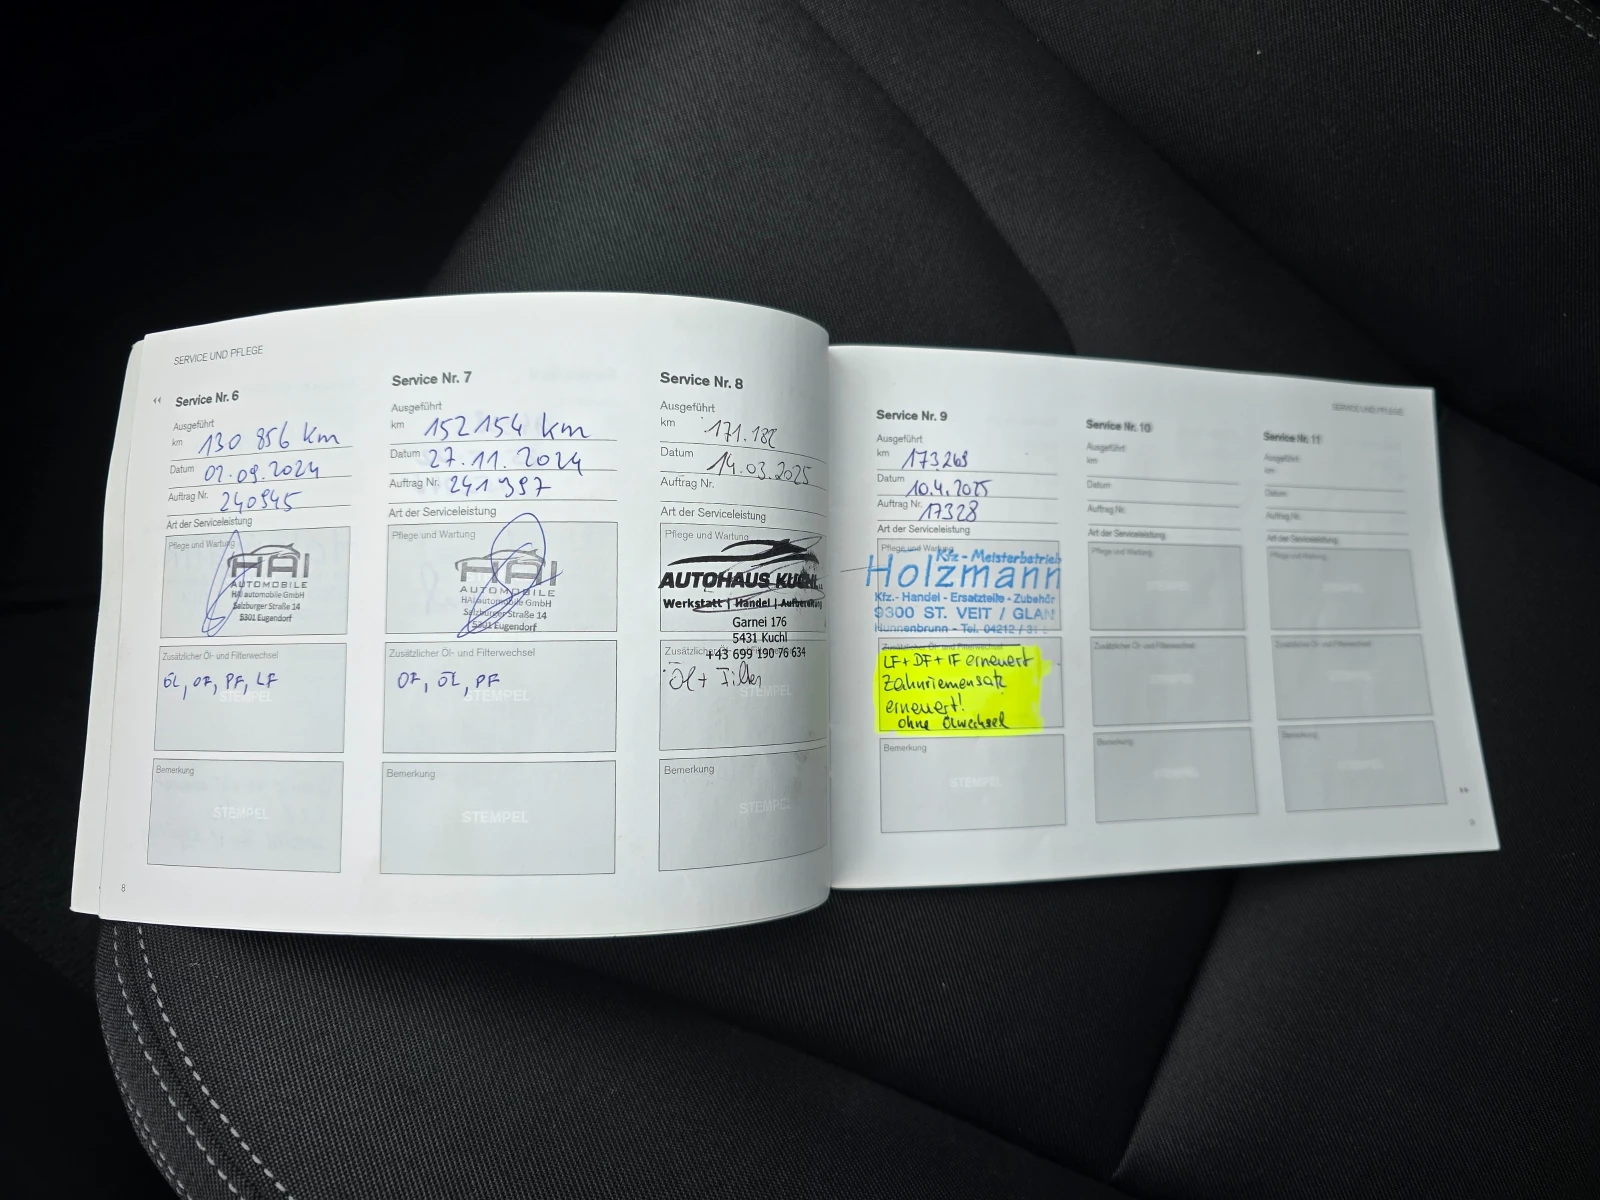 SERVICE UND PFLEGE
Service Nr. 6
Ausgeführt
km 130 856 km
Datum 02.09.2024
Auftrag Nr. 240945
Art der Serviceleistung
Pflege und Wartung
HAI
AUTOMOBILE
HAI automobile GmbH
Salzburger Straße 14
5301 Eugendorf
Zusätzlicher Öl- und Filterwechsel
ÖL, OF, PF, LF
STEMPEL
Bemerkung
STEMPEL
8
Service Nr. 7
Ausgeführt
km 152 154 km
Datum 27.11.2024
Auftrag Nr. 241 397
Art der Serviceleistung
Pflege und Wartung
HAI
AUTOMOBILE
HAI automobile GmbH
Salzburger Straße 14
5301 Eugendorf
Zusätzlicher Öl- und Filterwechsel
OF, ÖL, PF
STEMPEL
Bemerkung
STEMPEL
Service Nr. 8
Ausgeführt
km 171.182
Datum 14.03.2025
Auftrag Nr.
Art der Serviceleistung
Pflege und Wartung
AUTOHAUS KUCHL
Werkstatt | Handel | Aufbereitung
Garnei 176
5431 Kuchl
+43 699 190 76 634
Öl + Filter
STEMPEL
Bemerkung
STEMPEL
SERVICE UND PFLEGE
Service Nr. 9
Ausgeführt
km 173.268
Datum 10.4.2025
Auftrag Nr. 17328
Art der Serviceleistung
Pflege und Wartung
Kfz - Meisterbetrieb
Holzmann
Kfz.- Handel - Ersatzteile - Zubehör
9300 ST. VEIT / GLAN
Hunnenbrunn - Tel. 04212 /
Zusätzlicher Öl- und Filterwechsel
LF + DF + IF erneuert
Zahnriemensatz
erneuert!
ohne Ölwechsel
Bemerkung
STEMPEL
Service Nr. 10
Ausgeführt
km
Datum
Auftrag Nr.
Art der Serviceleistung
Pflege und Wartung
STEMPEL
Zusätzlicher Öl- und Filterwechsel
STEMPEL
Bemerkung
STEMPEL
Service Nr. 11
Ausgeführt
km
Datum
Auftrag Nr.
Art der Serviceleistung
Pflege und Wartung
STEMPEL
Zusätzlicher Öl- und Filterwechsel
STEMPEL
Bemerkung
STEMPEL
9